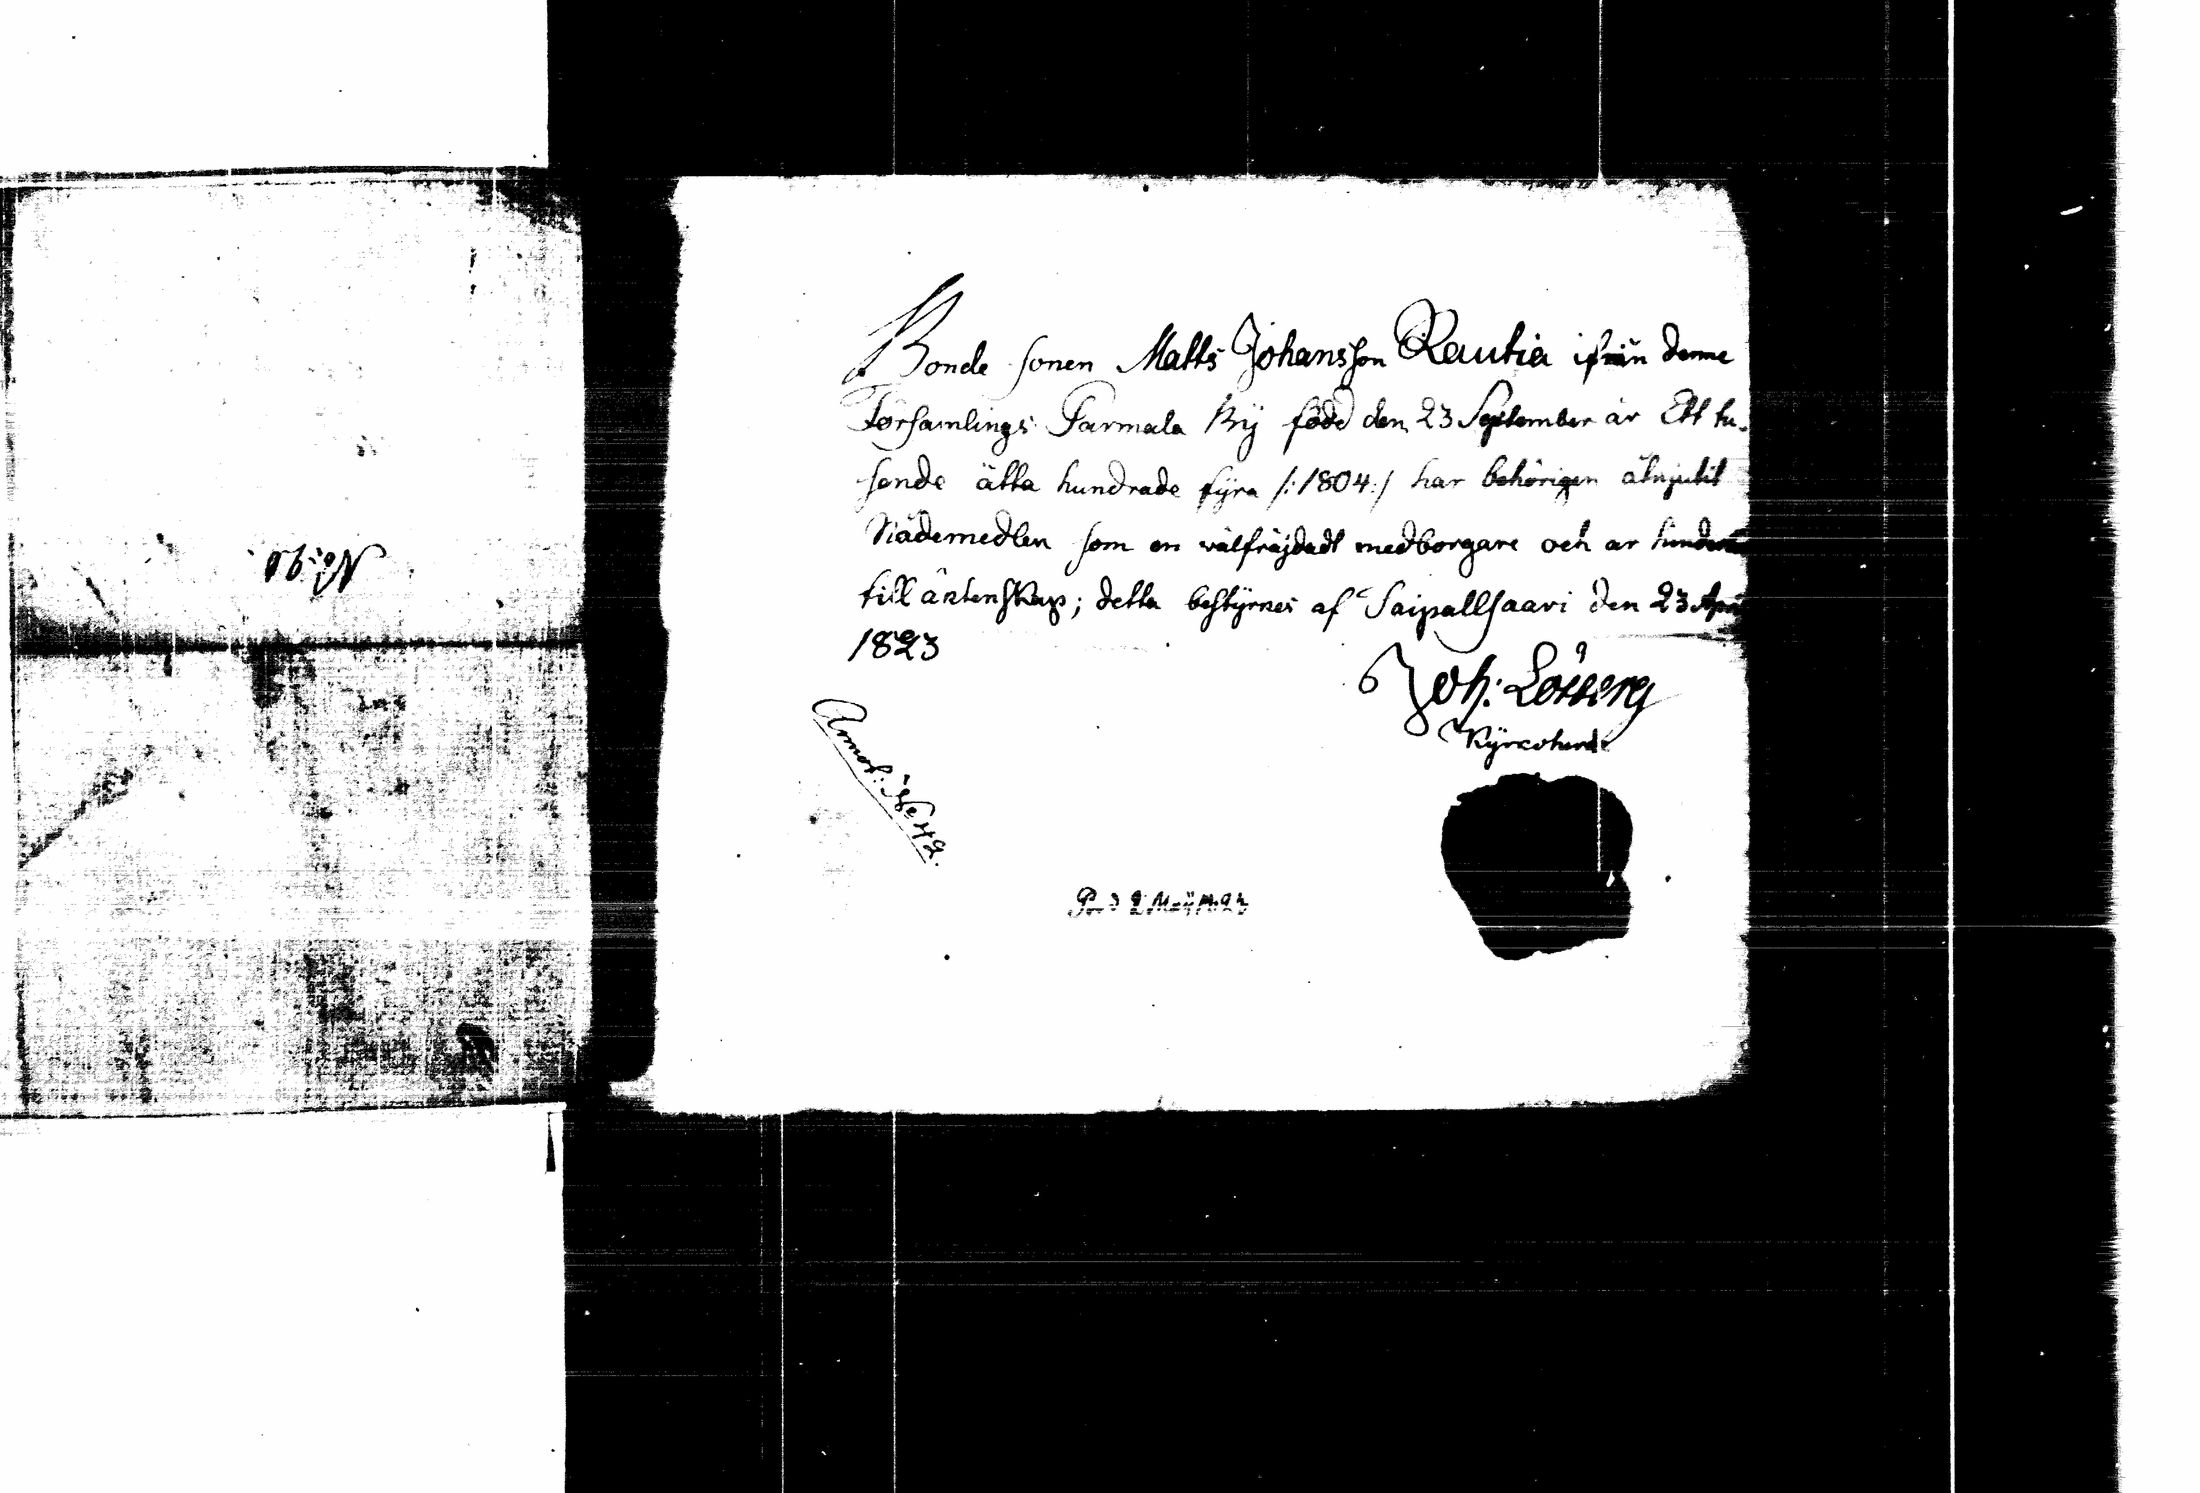 Bonde sonen Matts Johansson Rautia ifrån denne
Församlings Farmala By född den 23 September år Ett tu-
sende åtta hundrade fyra /:1804:/ har behörigen åtnjutit
Nådemedlen som en välfräjdadt medborgare och är
till äktenskap; detta bestyrnes af Saipallsaari den 23 April
1823
Joh: Lösberg
Annot: No 42.
No: 90.